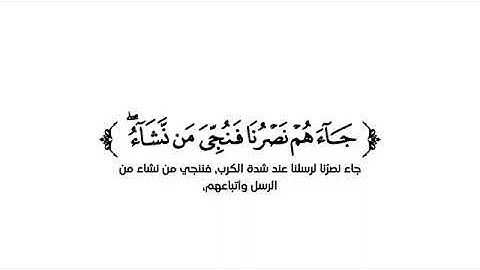 ﴿ جَآءَهُمۡ نَصۡرُنَا فَنُجِّيَ مَن نَّشَآءُۖ ﴾
جاء نصرُنا لرسلنا عند شدة الكرب، فننجي من نشاء من
الرسل وأتباعهم،